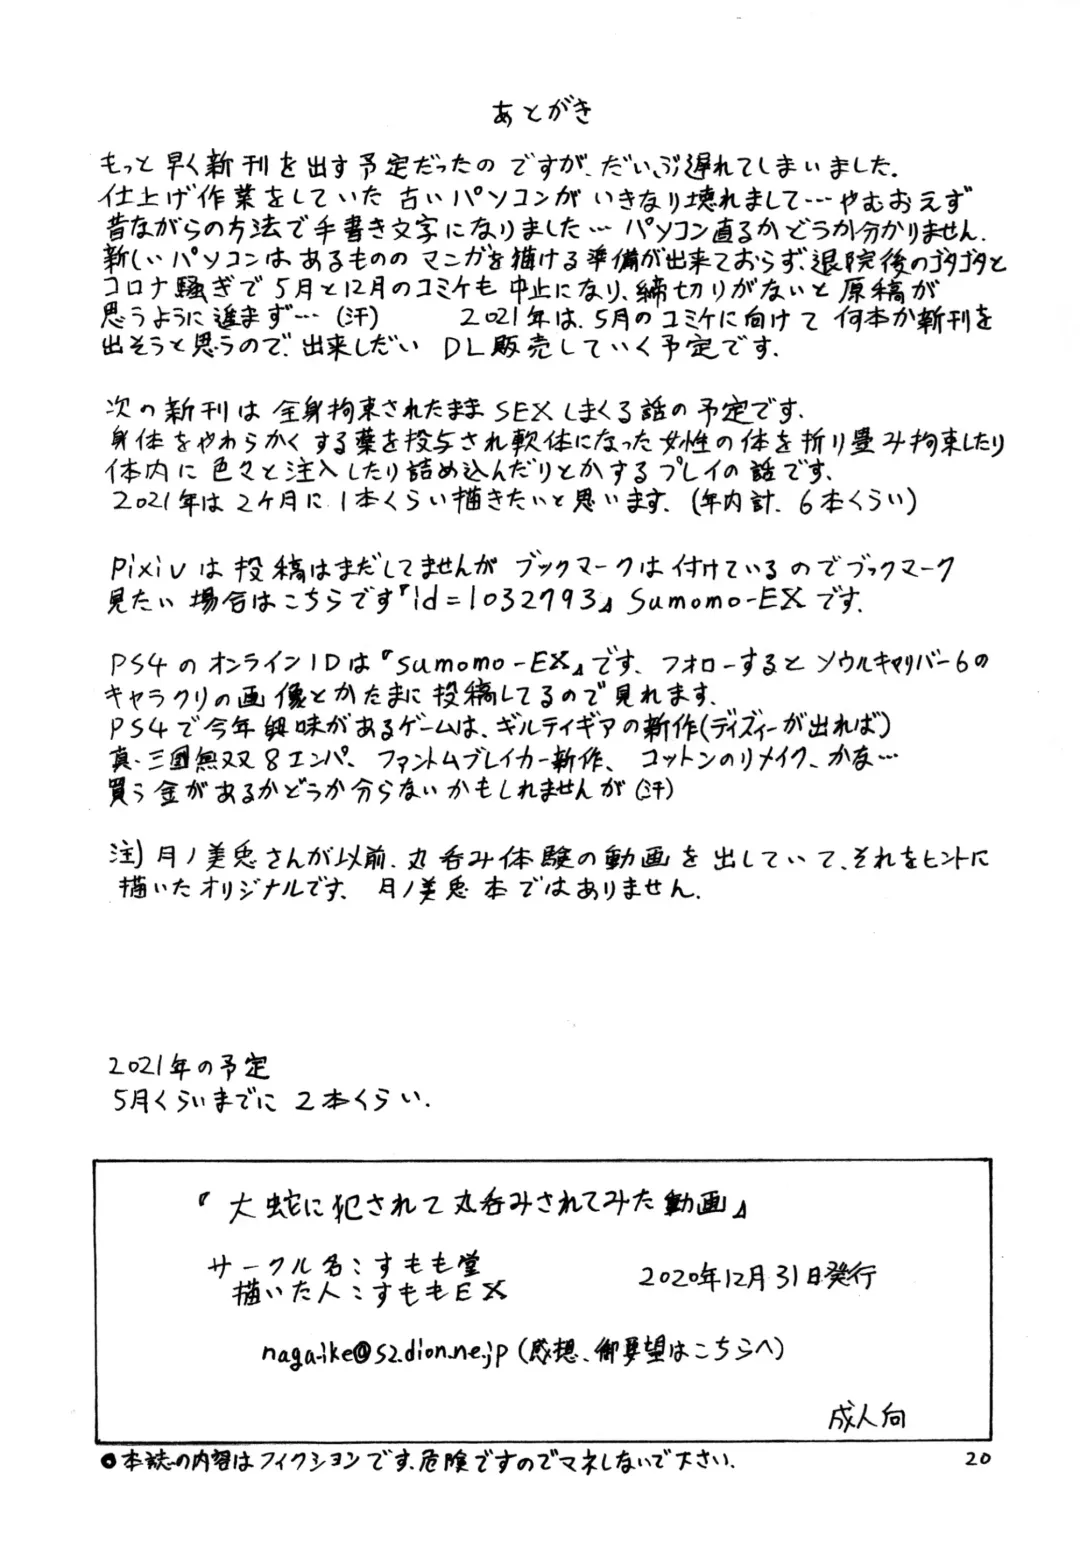 あとがき
もっと早く新刊を出す予定だったのですが、だいぶ遅れてしまいました.
仕上げ作業をしていた古いパソコンがいきなり壊れまして…やむおえず
昔ながらの方法で手書き文字になりました… パソコン直るかどうか分かりません.
新しいパソコンはあるもののマンガを描ける準備が出来ておらず、退院後のゴタゴタと
コロナ騒ぎで5月と12月のコミケも中止になり、締切りがないと原稿が
思うように進まず…(汗) 2021年は、5月のコミケに向けて何本か新刊を
出そうと思うので、出来しだい DL販売していく予定です.
次の新刊は全身拘束されたままSEXしまくる話の予定です.
身体をやわらかくする薬を投与され軟体になった女性の体を折り畳み拘束したり
体内に色々と注入したり詰め込んだりとかするプレイの話です.
2021年は2ヶ月に1本くらい描きたいと思います.(年内計.6本くらい)
Pixivは投稿はまだしてませんがブックマークは付けているのでブックマーク
見たい場合はこちらです『id=1032793』Sumomo-EXです.
PS4のオンラインIDは『sumomo-EX』です、フォローするとソウルキャリバー6の
キャラクリの画像とかたまに投稿してるので見れます.
PS4で今年興味があるゲームは、ギルティギアの新作(ディズィーが出れば)
真・三國無双8エンパ、ファントムブレイカー新作、コットンのリメイク、かな…
買う金があるかどうか分らないかもしれませんが(汗)
注)月ノ美兎さんが以前、丸呑み体験の動画を出していて、それをヒントに
描いたオリジナルです、月ノ美兎本ではありません.
2021年の予定
5月くらいまでに2本くらい.
『大蛇に犯されて丸呑みされてみた動画』
サークル名:すもも堂
2020年12月31日発行
描いた人:すももEX
nagaike@s2.dion.ne.jp(感想、御要望はこちらへ)
成人向
●本誌の内容はフィクションです.危険ですのでマネしないで下さい.
20